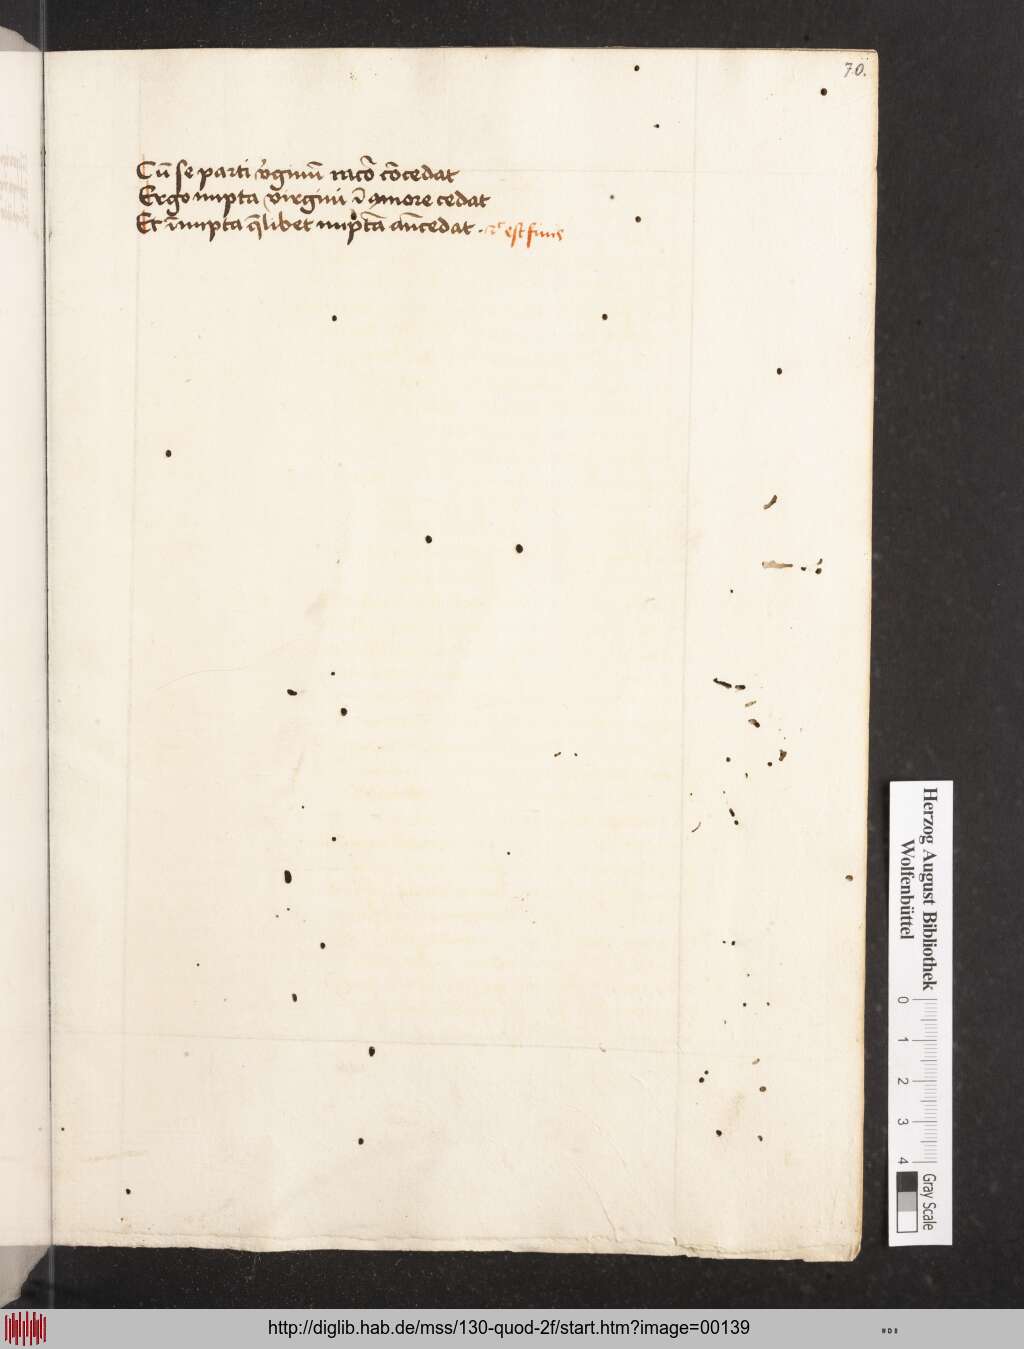 70.
Cū se parti v̾ginū racō cōcedat
Ergo nupta virgini ī amore cedat
Et īnupta q̄libet nuptā ancedat . est finis
Herzog August Bibliothek
Wolfenbüttel
0 1 2 3 4
Gray Scale
http://diglib.hab.de/mss/130-quod-2f/start.htm?image=00139